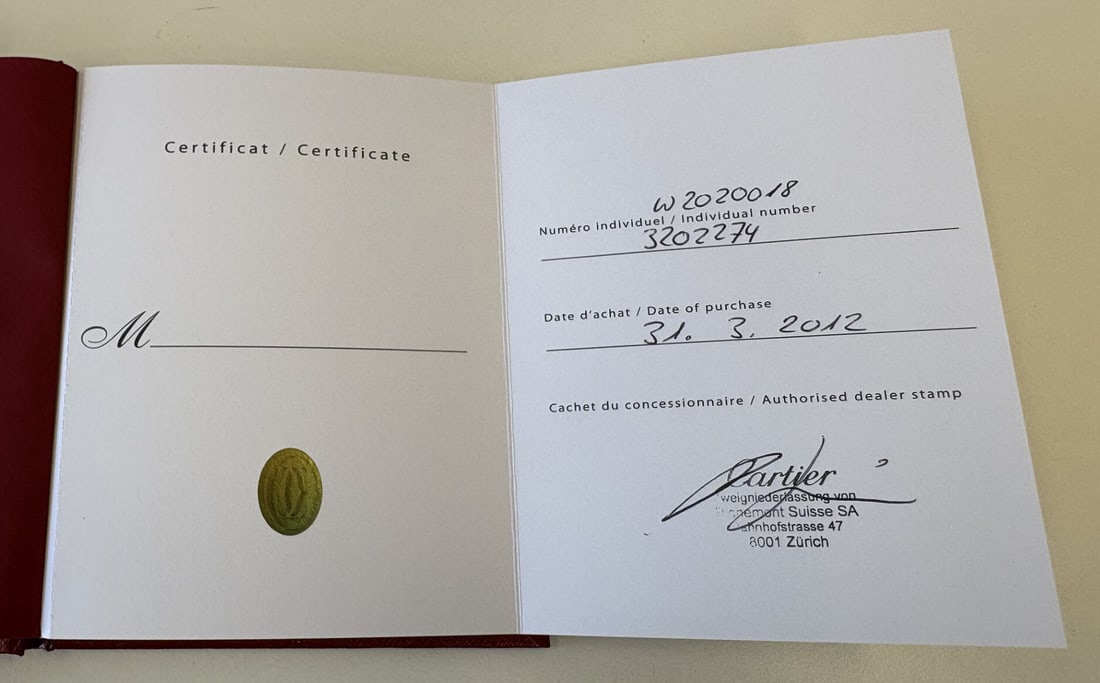 Certificat / Certificate
M
W2020018
Numéro individuel / Individual number
3202274
Date d'achat / Date of purchase
31. 3. 2012
Cachet du concessionnaire / Authorised dealer stamp
Cartier
weigniederlassung von
Suisse SA
hnhofstrasse 47
8001 Zürich